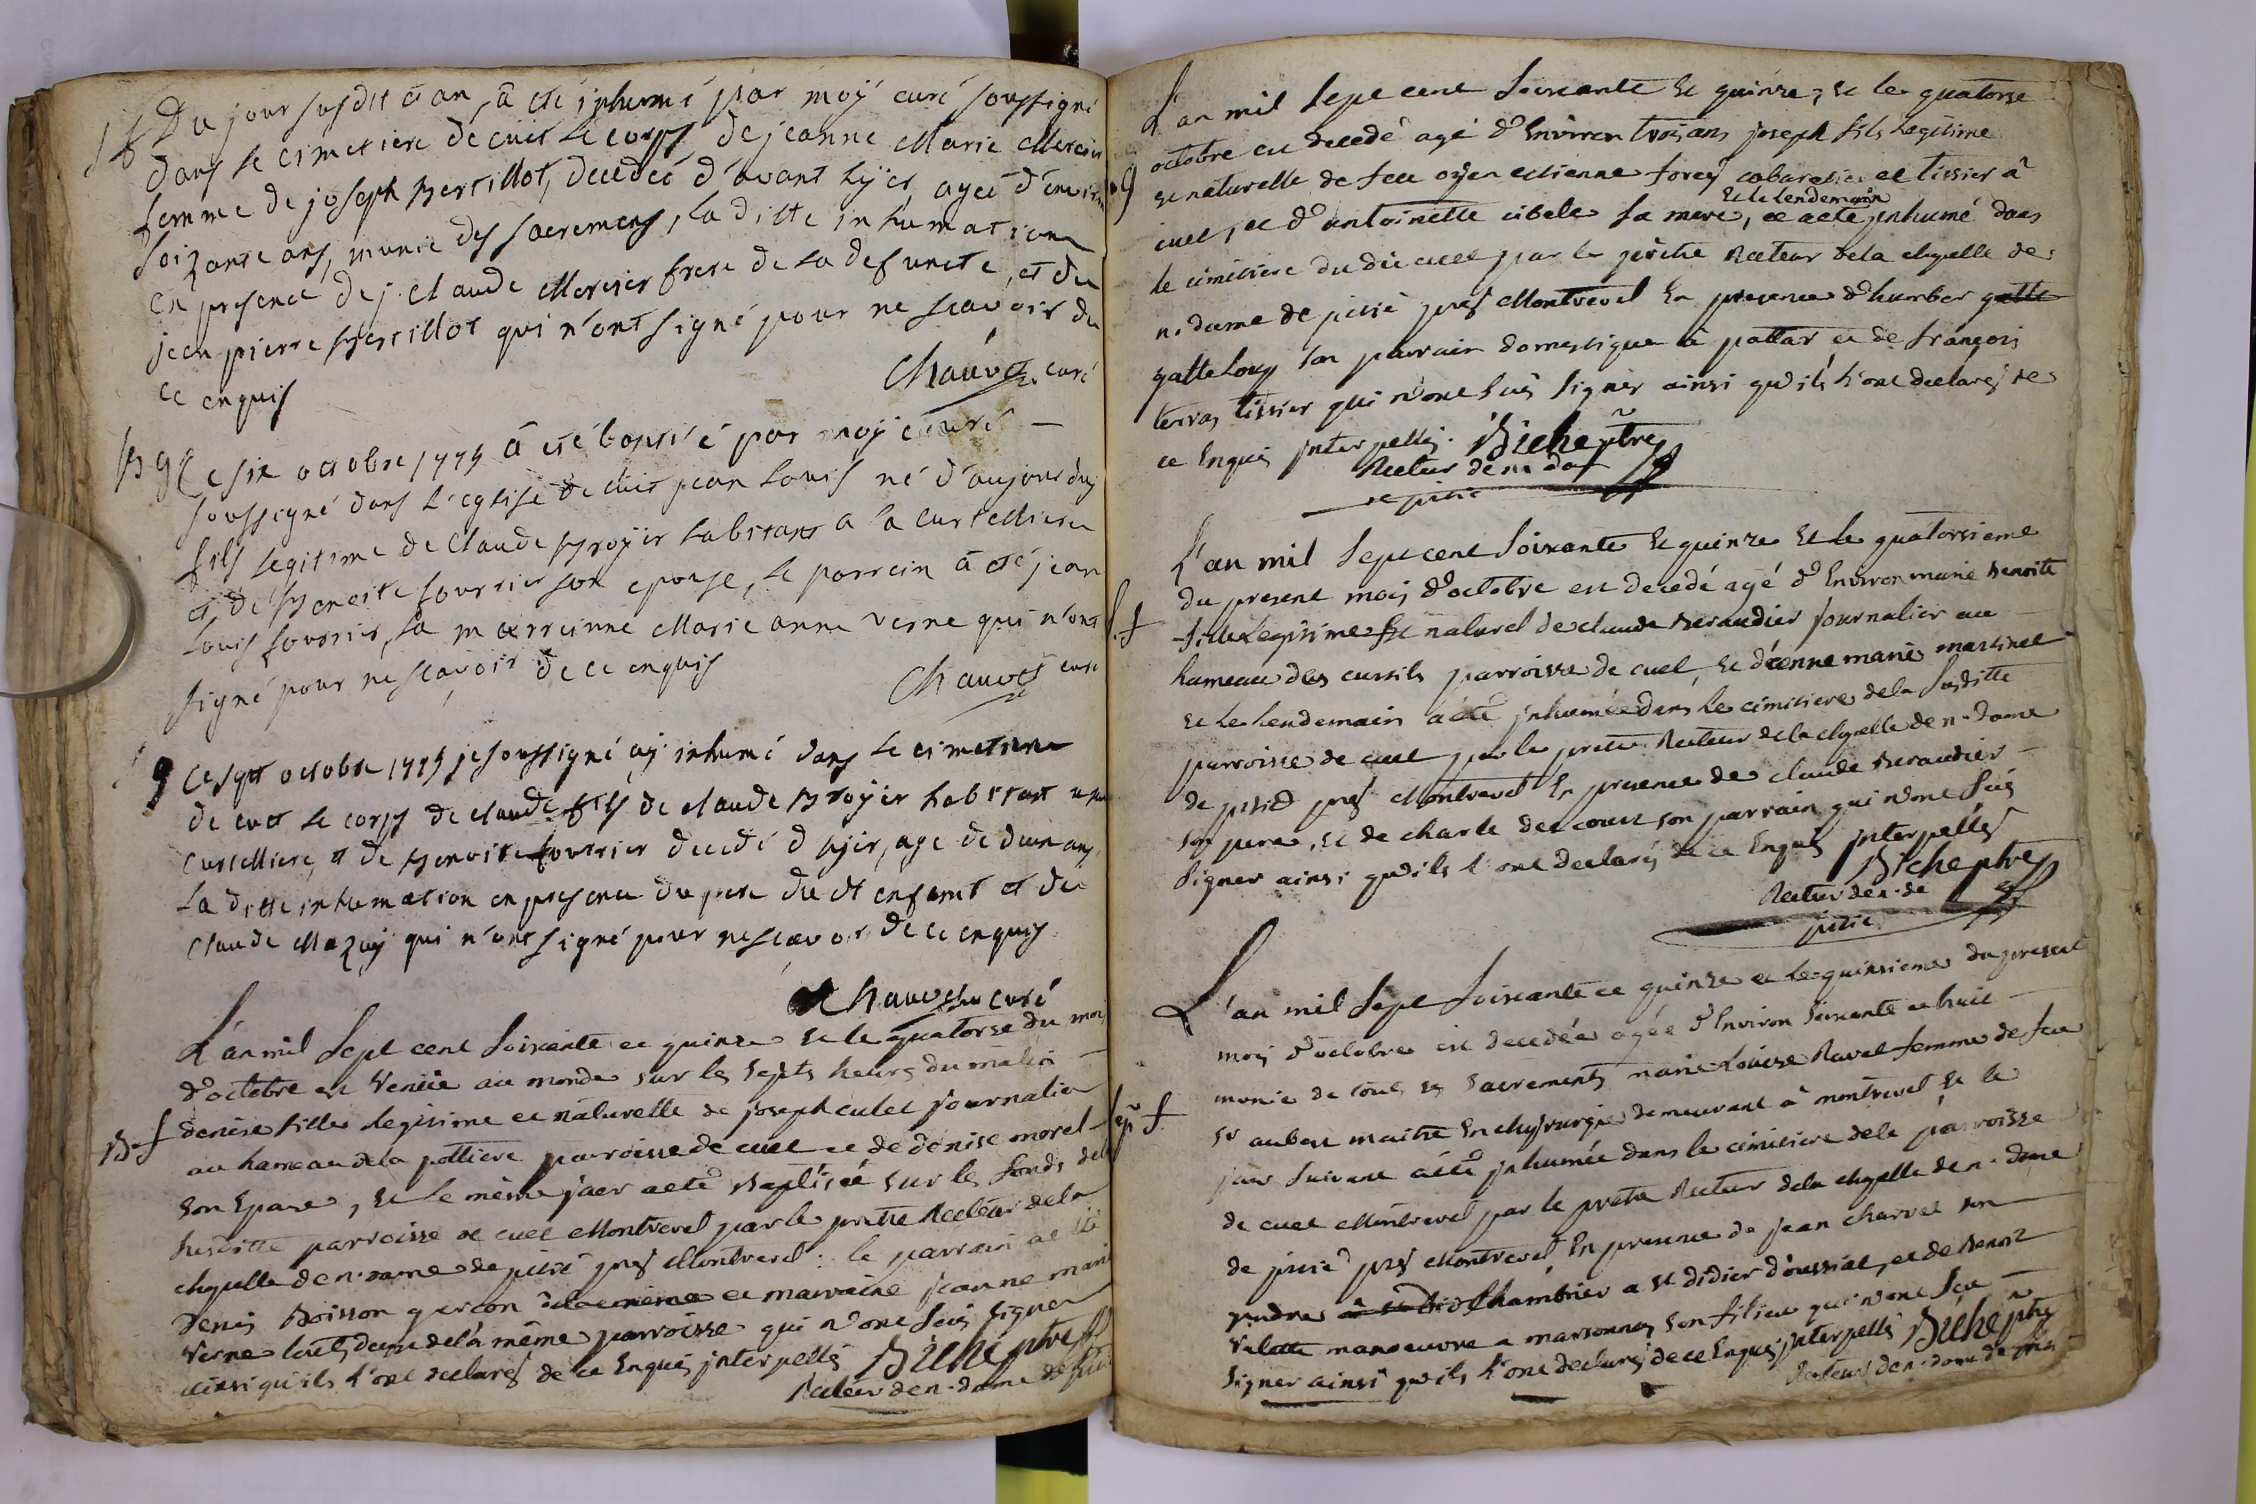 S f Du jour susdit et an, a été inhumé par moÿ curé soussigné
dans le cimetiere de cuet le corps de jeanne Marie Mercier
femme de joseph Bertillot, decedeé d'avant hÿer, ageé d'environ
soizante ans, munie des sacremens, la ditte inhumation
en presence de j. claude Mercier frere de la defuncte, et de
jean pierre Bertillot qui n'ont signé pour ne scavoir de
ce enquis
Chauvet curé
B g Le six octobre 1775 a eté baptisé par moÿ curé
soussigné dans l'eglise de cuet jean Louis né d'aujourduÿ
fils legitime de Claude Broÿer habitant a la curtelliere
et de Benoite fourrier son epouse, le parrein a eté jean
Louis fourrier, la marreinne Marie anne verne qui n'ont
signé pour ne scavoir de ce enquis
Chauvet curé
S g Ce sept octobre 1775 je soussigné aÿ inhumé dans le cimetierre
de cuet le corps de claude fils de claude Broÿer habitant a la
curtelliere, et de Benoite fourrier decedé d hÿer, age de deux ans,
la ditte inhumation en presence du pere du dt enfant et de
claude Mazuÿ qui n'ont signé pour ne scavoir de ce enquis
Chauvet curé
L'an mil sept cent soixante et quinze et le quatorze du mois
d'octobre est venüe au monde sur les septs heures du matin
B f denise fille legitime et naturelle de joseph culet journalier
au hameau de la pottiere parroisse de cuet et de denise morel
son Epouse, et le même jour a eté Baptiseé sur les fonds de la
susditte parroisse de cuet Montrevel par le prètre Recteur de la
chapelle de n. dame de pitié pres Montrevel: le parrain a eté
Denis Boisson garçon de la même et marraine jeanne marie
verne touts deux de la même parroisse qui n'ont sçüs signer
ainsi qu'ils l'ont declarés de ce Enquis jnterpellés Biche ptre
Recteur de n. dame de pitié
L'an mil sept cent soixante et quinze, et le quatorse
octobre est decedé agé d'Environ trois ans joseph fils legitime
S g et naturelle de feu oyen estienne forey cabaretier et tissier à
cuet, et d'antoinette cibele sa mere, et a eté et le lendemain jnhumé dans
le cimitiere du dit cuet par le prètre Recteur de la chapelle de
n. dame de pitié pres Montrevel En presence d'humber gatte
gatteloup son parrain domestique à pottar et de françois
terras tissier qui n'ont sçus signer ainsi qu'ils l'ont declarés de
ce Enquis jnterpellés. Biche ptre
Recteur de n. da
de pitié
L'an mil sept cent soixante et quinze et le quatorsieme
du present mois d'octobre est decedé agé d'Environ marie Benoite
S. f fille legitime et naturel de claude Beraudier journalier au
hameau des cursils parroisse de cuet, et d'etienne marie martinet
et le lendemain a eté jnhumée dans le cimitiere de la susditte
parroisse de cuet par le prètre Recteur de la chapelle de n. dame
de pitié pres Montrevel En presence de claude Beraudier
son pere, et de charle descouts son parrain qui n'ont sçüs
signer ainsi qu'ils l'ont declarés de ce Enquis jnterpellés
Biche ptre
Recteur de n. de
pitié
L'an mil sept soixante et quinze et le quinsieme du present
mois d'octobre est decedée agée d'Environ soixante et huit
munie de touts ses sacrements marie Louise Ravet femme de feu
Sp. f sr aubert maitre En chyrurgie demeurant à montrevel et le
jour suivant a eté jnhumée dans le cimitiere de la parroisse
de cuet Montrevel par le prètre Recteur de la chapelle de n. dame
de pitié pres Montrevel En presence de jean charvet son
gendre chambrier a st didier d'oussiat, et de Benoit
valette manoeuvre a marsonnas son filieu qui n'ont sçu
signer ainsi qu'ils l'ont declarés de ce Enquis jnterpellés Biche ptre
Recteur de n. dame de pitié